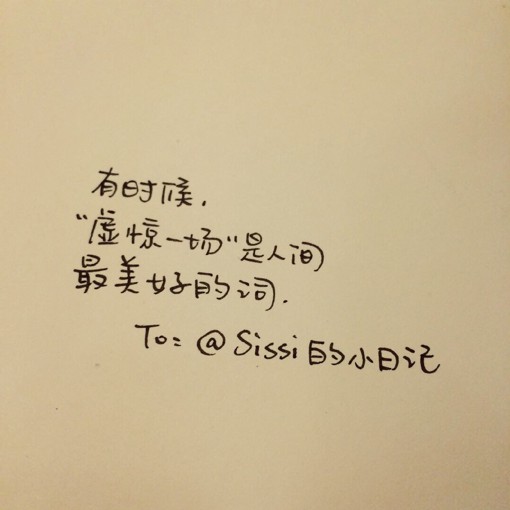 有时候.
“虚惊一场”是人间
最美好的词.
To: @Sissi的小日记